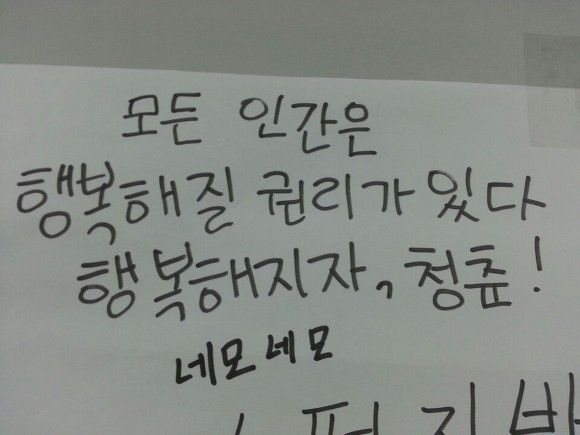 모든 인간은
행복해질 권리가 있다
행복해지자, 청춘!
네모네모